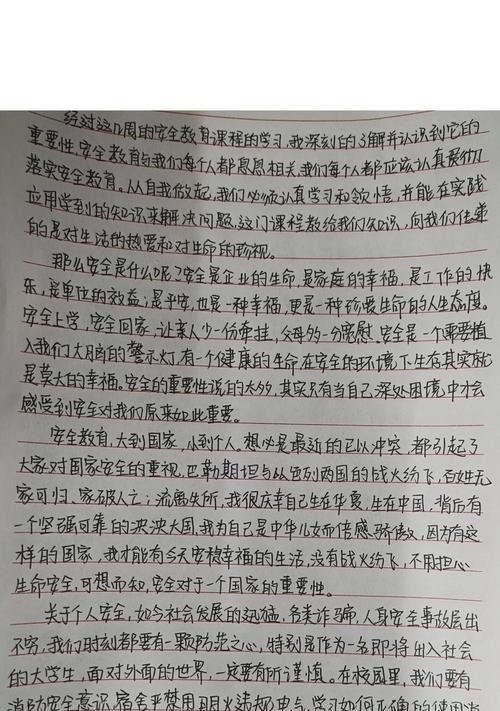 经过这几周的安全教育课程的学习,我深刻的了解并认识到它的
重要性,安全教育与我们每个人都息息相关,我们每个人都应该认真贯彻
落实安全教育。从自我做起,我们必须认真学习和领悟,并能在实践
应用学到的知识来解决问题,这门课程教给我们知识,向我们传递
的是对生活的热爱和对生命的珍视。
那么安全是什么呢?安全是企业的生命,是家庭的幸福,是工作的快
乐,是单位的效益;是平安,也是一种幸福,更是一种珍爱生命的人生态度。
安全上学,安全回家,让亲人少一份牵挂,父母多一分宽慰。安全是一个需要植
入我们大脑的警示灯,有一个健康的生命在安全的环境下生存其实就
是莫大的幸福。安全的重要性说的太多,其实只有当自己深处困境中才会
感受到安全对我们原来如此重要。
安全教育,大到国家,小到个人。想必是最近的巴以冲突,都引起了
大家对国家安全的重视,巴勒斯坦与以色列两国的战火纷飞,百姓无
家可归、家破人亡;流离失所,我很庆幸自己生在华夏,生在中国,背后有
一个坚强可靠的泱泱大国。我为自己是中华儿女而倍感骄傲,因为有这
样的国家,我才能有今天安稳幸福的生活,没有战火纷飞,不用担心
生命安全,可想而知,安全对于一个国家的重要性。
关于个人安全,如今社会发展的迅猛,各类诈骗,人身安全事故层出
不穷,我们时刻都要有一颗防范之心,特别是作为一名即将出入社会
的大学生,面对外面的世界,一定要有所谨慎。在校园里,我们要有
消防安全意识,宿舍严禁用明火违规电气,学习如何正确的使用消